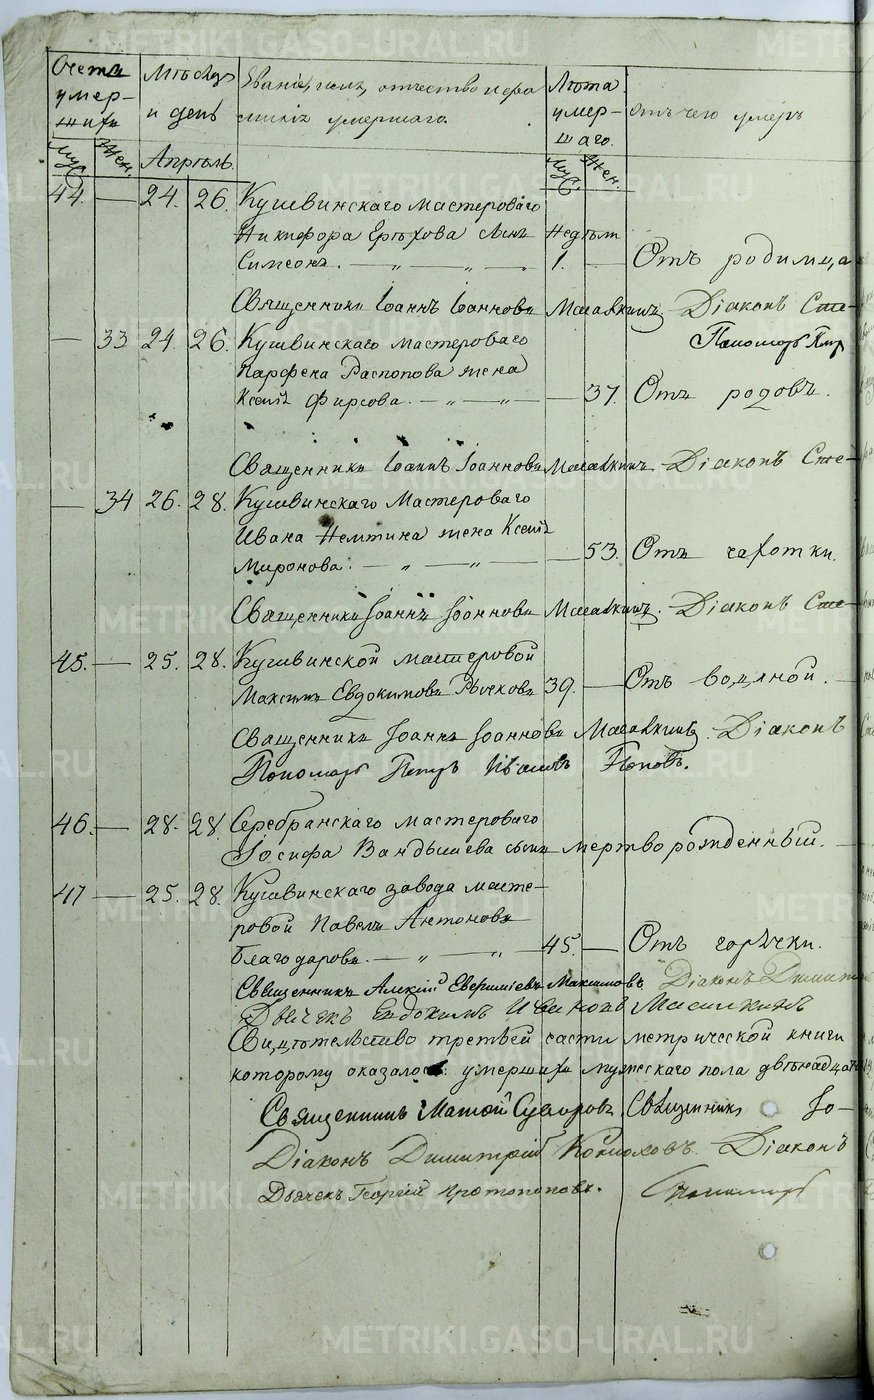 Счетъ умер-шихъ
Мѣсяцъ и день
Званіе, имя, отчество и фа
милія умершаго.
Лѣта умер-шаго.
Отъ чего умеръ
Муж. Жен. Апрѣль. Муж. Жен.
44. — 24. 26. Кушвинскаго мастероваго
Никифора Ерѣхова сынъ Недѣли
Симеонъ. — „ — „ — 1. — Отъ родимца
Священникъ Іоаннъ Іоанновъ Масалкинъ Діаконъ Сте-
Пономарь Петр
— 33 24. 26. Кушвинскаго мастероваго
Парфена Распопова жена
Ксенія Фирсова. — „ — „ — — 37. Отъ родовъ.
Священникъ Іоаннъ Іоанновъ Масалкинъ Діаконъ Сте-
— 34 26. 28. Кушвинскаго Мастероваго
Ивана Немтина жена Ксенія
Миронова. — „ — „ — — 53. Отъ чахотки.
Священникъ Іоаннъ Іоанновъ Масалкинъ. Діаконъ Сте-
45. — 25. 28. Кушвинской мастеровой
Максимъ Евдокимовъ Рычковъ 39. — Отъ водяной. —
Священникъ Іоаннъ Іоанновъ Масалкинъ. Діаконъ
Пономарь Петръ Ивановъ Поповъ.
46. — 28. 28. Серебранскаго мастероваго
Іосифа Вандышева сынъ мертворожденный. —
47 — 25. 28. Кушвинскаго завода масте-
ровой Павелъ Антоновъ
Благодаровъ. — „ — „ — 45. — Отъ горячки.
Священникъ Алексій Евфиміевъ Максимовъ Діаконъ Димит
Дьячекъ Евдокимъ Ивановъ Масалкинъ
Свидѣтельство третьей части метрической книги
которому оказалось умершихъ мужескаго пола двѣнадцать
Священникъ Матѳій Суворовъ Священникъ Іо-
Діаконъ Димитрій Конюховъ. Діаконъ
Дьячекъ Георгій Протопоповъ. Пономарь
METRIKI.GASO-URAL.RU